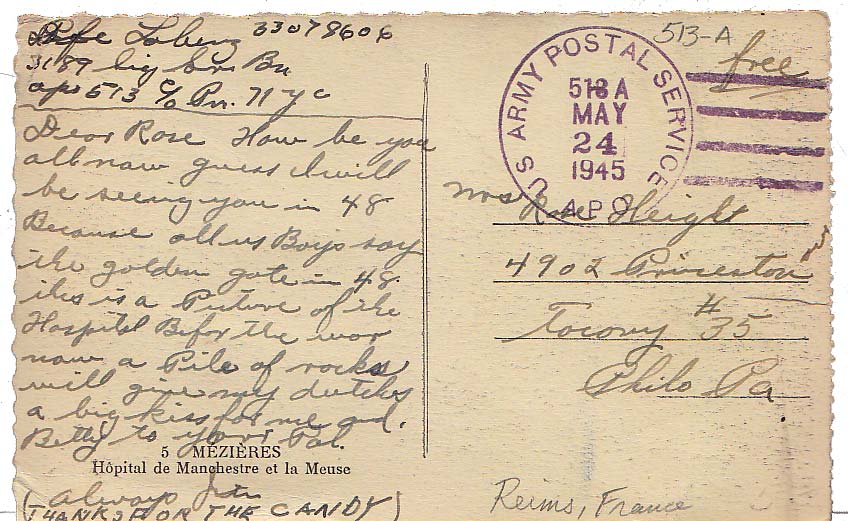 Pfc 33078606
3189 Sig Serv Bn
apo 513 c/o Pm. N y c
Dear Rose How be you
all now guess I will
be seeing you in 48
Because all us Boys say
the golden gate in 48.
this is a Picture of the
Hospital Befor the war
now a Pile of rocks
will give my dutches
a big kiss for me and
Betty to your Pal.
5 MÉZIÈRES
Hôpital de Manchestre et la Meuse
always
(THANKS FOR THE CANDY)
513-A
free
US ARMY POSTAL SERVICE
513 A
MAY
24
1945
A.P.O.
Mrs Rose Height
4902 Princeton
Tacony # 35
Phila Pa.
Reims, France